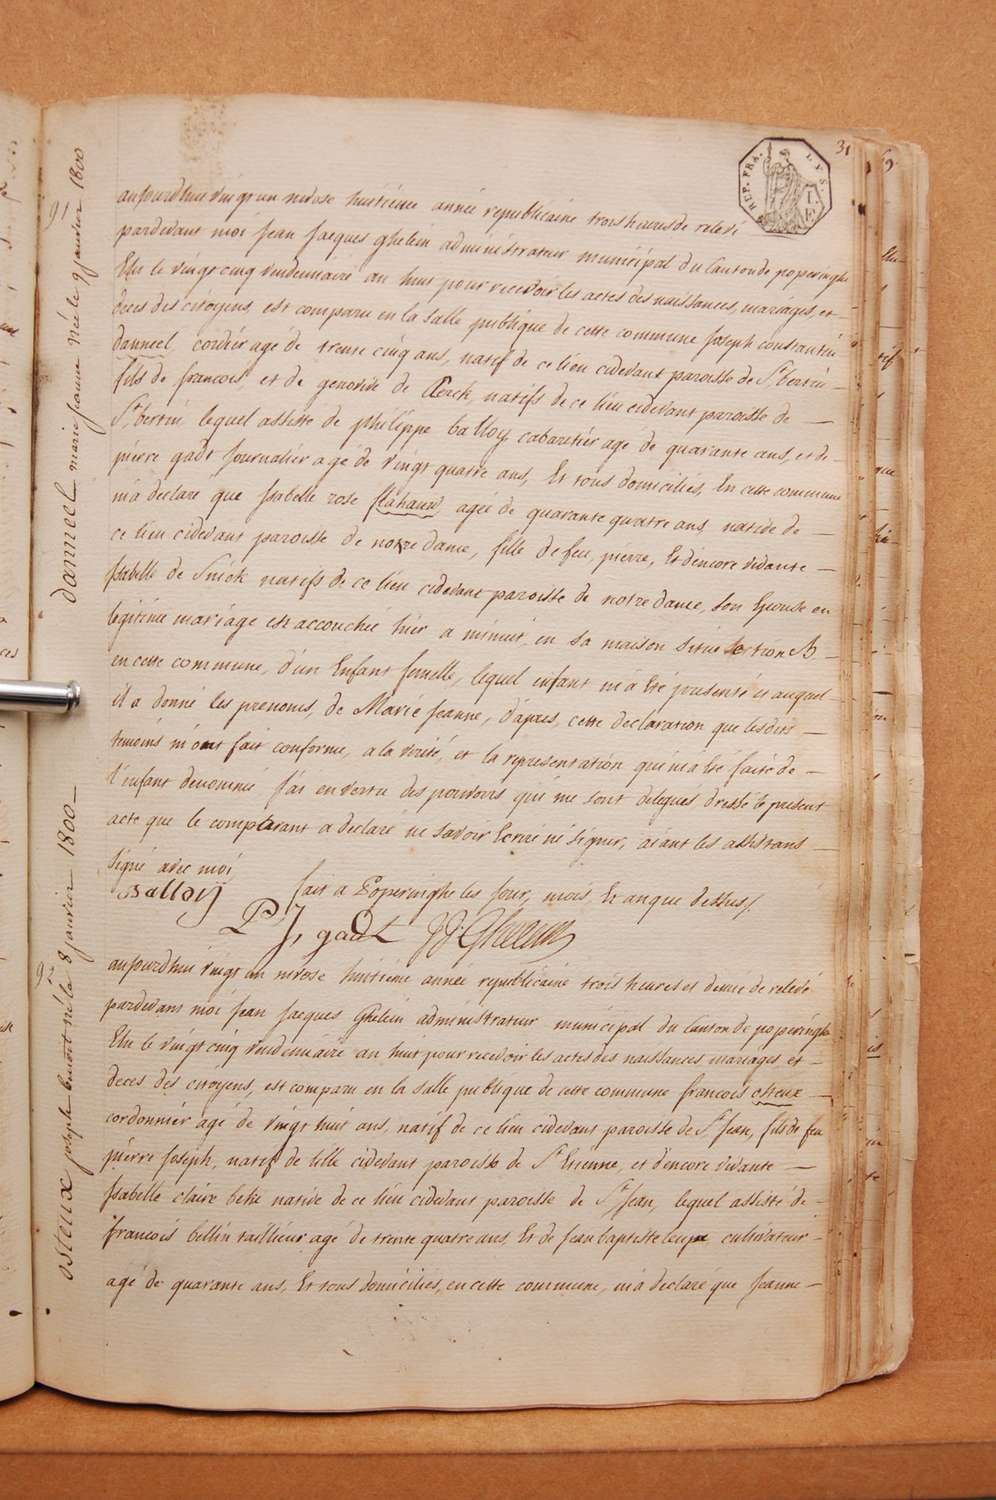 31
REP. FRA.
L. V. S.
91
danneel marie jeanne née le 9 janvier 1800
aujourdhui vingt un nivose huitieme année republicaine trois heures de relevé
pardevant moi Jean Jacques Ghelein administrateur municipal du Canton de poperinghe
Elu le vingt cinq vindemiaire an huit pour recevoir les actes des naissances, mariages, et
deces des citoyens, est comparu en la salle publique de cette commune Joseph constantin
danneel, cordier agé de trente cinq ans, natif de ce lieu cidevant paroisse de St bertin
fils de francois, et de genovive de Clerck, natifs de ce lieu cidevant paroisse de
St bertin, lequel assisté de philippe balloy cabaretier agé de quarante ans, et de
pierre gadt Journalier agé de vingt quatre ans, Et tous domiciliés, En cette commune
m'a declaré que Isabelle rose flahauw, agée de quarante quatre ans native de
ce lieu cidevant paroisse de notre dame, fille de feu, pierre, Et d'encore vivante
Isabelle de Snick natifs de ce lieu cidevant paroisse de notre dame, son Epouse en
legitime mariage est accouchee hier a minuit, en sa maison situé section B
en cette commune, d'un Enfant femelle, lequel enfant m'a Eté presenté et auquel
il a donné les prenoms, de Marie Jeanne, d'apres, cette declaration que lesdits
temoins m'ont fait conforme, a la verité, et la representation qui m'a Eté faite de
l'enfant denommé J'ai en vertu des pouvoirs qui me sont delegués dressé le present
acte que le comparant a declaré ne savoir Ecrire ni signer, aiant les assistans
signé avec moi,
fait a Poperinghe les Jour, mois, Et an que dessus/.
Balloij
P, J, gadt JJ Ghelein
92
osteux joseph benoit né le 8 janvier 1800
aujourdhui vingt un nivose huitieme année republicaine trois heures et demie de relevé
pardevant moi Jean Jacques Ghelein administrateur municipal du Canton de poperinghe
Elu le vingt cinq vindemiaire an huit pour recevoir les actes des naissances mariages et
deces des citoyens, est comparu en la salle publique de cette commune francois osteux
cordonnier agé de vingt huit ans, natif de ce lieu cidevant paroisse de St Jean, fils de feu
pierre Joseph, natif de lille cidevant paroisse de St Etienne, et d'encore vivante
Isabelle claire beke native de ce lieu cidevant paroisse de St Jean, lequel assisté de
francois bellin taillieur agé de trente quatre ans, Et de Jean baptiste cultivateur
agé de quarante ans, Et tous domiciliés, en cette commune, m'a declaré que Jeanne